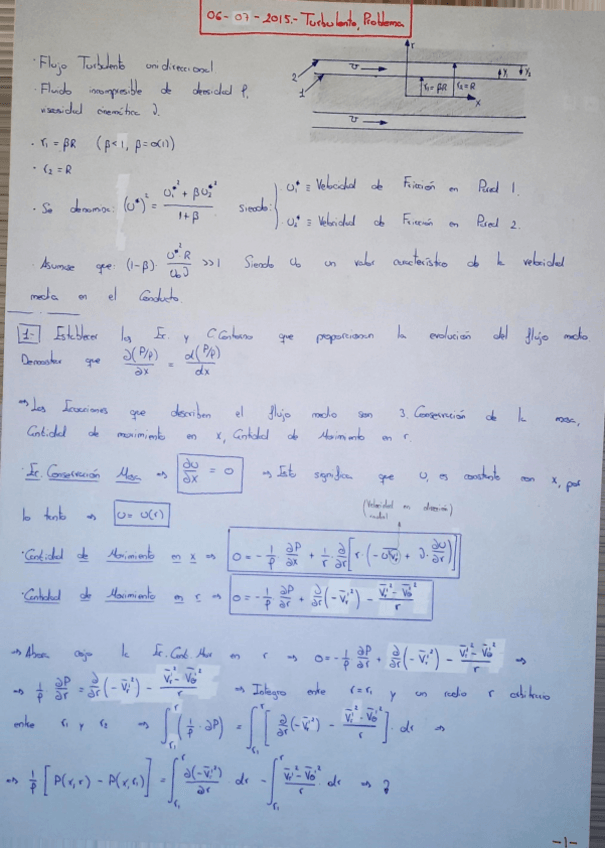 06-07-2015.- Turbulento, Problema
· Flujo Turbulento unidireccional
· Fluido incompresible de densidad ρ,
viscosidad cinemática ν.
· r₁ = βR (β<1, β=o(1))
· r₂ = R
r
2
1
v →
r₁=βR
r₂=R
x
y
y₂
v →
· Se denomina: (u*)² = (u₁*² + βu₂*²)/(1+β) siendo: { · u₁* ≡ Velocidad de Fricción en Pared 1.
· u₂* ≡ Velocidad de Fricción en Pared 2.
· Asumase que: (1-β)· (u*² R)/(u₀ ν) >>1 Siendo u₀ un valor característico de la velocidad
media en el Conducto.
1.- Establecer las Ec. y C Contorno que proporcionan la evolución del flujo medio.
Demostrar que ∂(P/ρ)/∂x = d(P/ρ)/dx
⇒ Las Ecuaciones que describen el flujo medio son 3. Conservación de la masa,
Cantidad de movimiento en x, Cantidad de Movimiento en r.
· Ec. Conservación Masa ⇒ ∂u/∂x = 0 ⇒ Esto significa que u, es constante con x, por
lo tanto ⇒ u = u(r)
(Velocidad en dirección radial)
· Cantidad de Movimiento en x ⇒ 0 = -1/ρ ∂P/∂x + 1/r ∂/∂r [r·(-u'v_r' + ν·∂u/∂r)]
· Cantidad de Movimiento en r ⇒ 0 = -1/ρ ∂P/∂r + ∂/∂r(-v_r'²) - (v_r'² - v_θ'²)/r
⇒ Ahora cojo la Ec. Cant. Mov en r ⇒ 0 = -1/ρ ∂P/∂r + ∂/∂r(-v_r'²) - (v_r'² - v_θ'²)/r ⇒
⇒ 1/ρ · ∂P/∂r = ∂/∂r(-v_r'²) - (v_r'² - v_θ'²)/r ⇒ Integro entre r=r₁ y un radio r arbitrario
entre r₁ y r₂ ⇒ ∫_{r₁}^{r} (1/ρ · ∂P) = ∫_{r₁}^{r} [∂/∂r(-v_r'²) - (v_r'² - v_θ'²)/r]·dr ⇒
⇒ 1/ρ [P(x,r) - P(x,r₁)] = ∫_{r₁}^{r} ∂(-v_r'²)/∂r dr - ∫_{r₁}^{r} (v_r'² - v_θ'²)/r ·dr ⇒
-1-